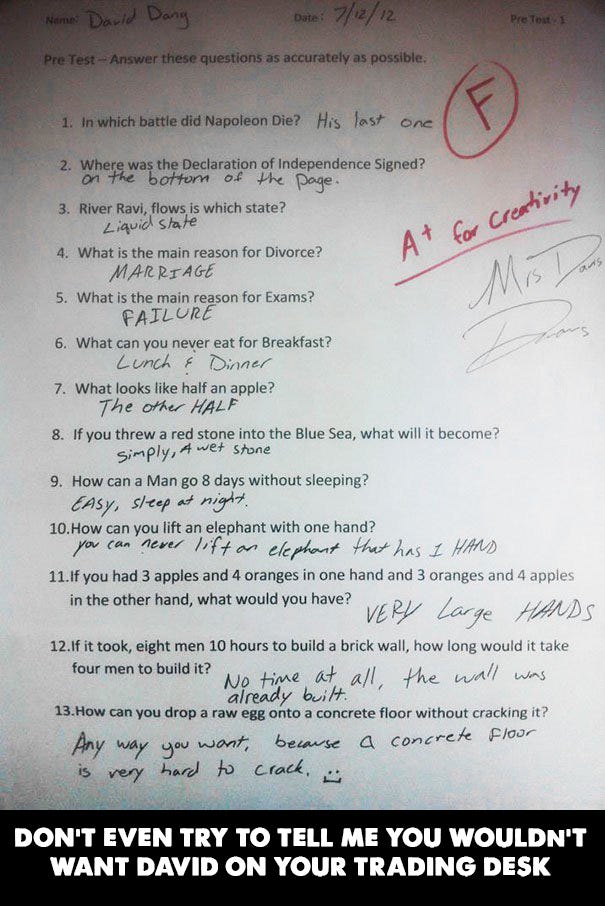 Name: David Dang Date: 7/12/12 Pre Test - 1
Pre Test – Answer these questions as accurately as possible.
F
1. In which battle did Napoleon Die? His last one
2. Where was the Declaration of Independence Signed?
on the bottom of the page.
3. River Ravi, flows is which state?
Liquid state
A+ for Creativity
4. What is the main reason for Divorce?
MARRIAGE
Mrs Davis
5. What is the main reason for Exams?
FAILURE
6. What can you never eat for Breakfast?
Lunch & Dinner
7. What looks like half an apple?
The other HALF
8. If you threw a red stone into the Blue Sea, what will it become?
simply, A wet stone
9. How can a Man go 8 days without sleeping?
EASY, sleep at night.
10.How can you lift an elephant with one hand?
you can never lift an elephant that has 1 HAND
11.If you had 3 apples and 4 oranges in one hand and 3 oranges and 4 apples
in the other hand, what would you have? VERY Large HANDS
12.If it took, eight men 10 hours to build a brick wall, how long would it take
four men to build it? No time at all, the wall was
already built.
13.How can you drop a raw egg onto a concrete floor without cracking it?
Any way you want, because a concrete floor
is very hard to crack.
DON'T EVEN TRY TO TELL ME YOU WOULDN'T
WANT DAVID ON YOUR TRADING DESK